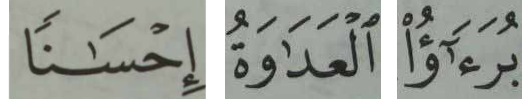 بُرَءَٰٓؤُا۟ ٱلْعَدَٰوَةُ إِحْسَٰنًا